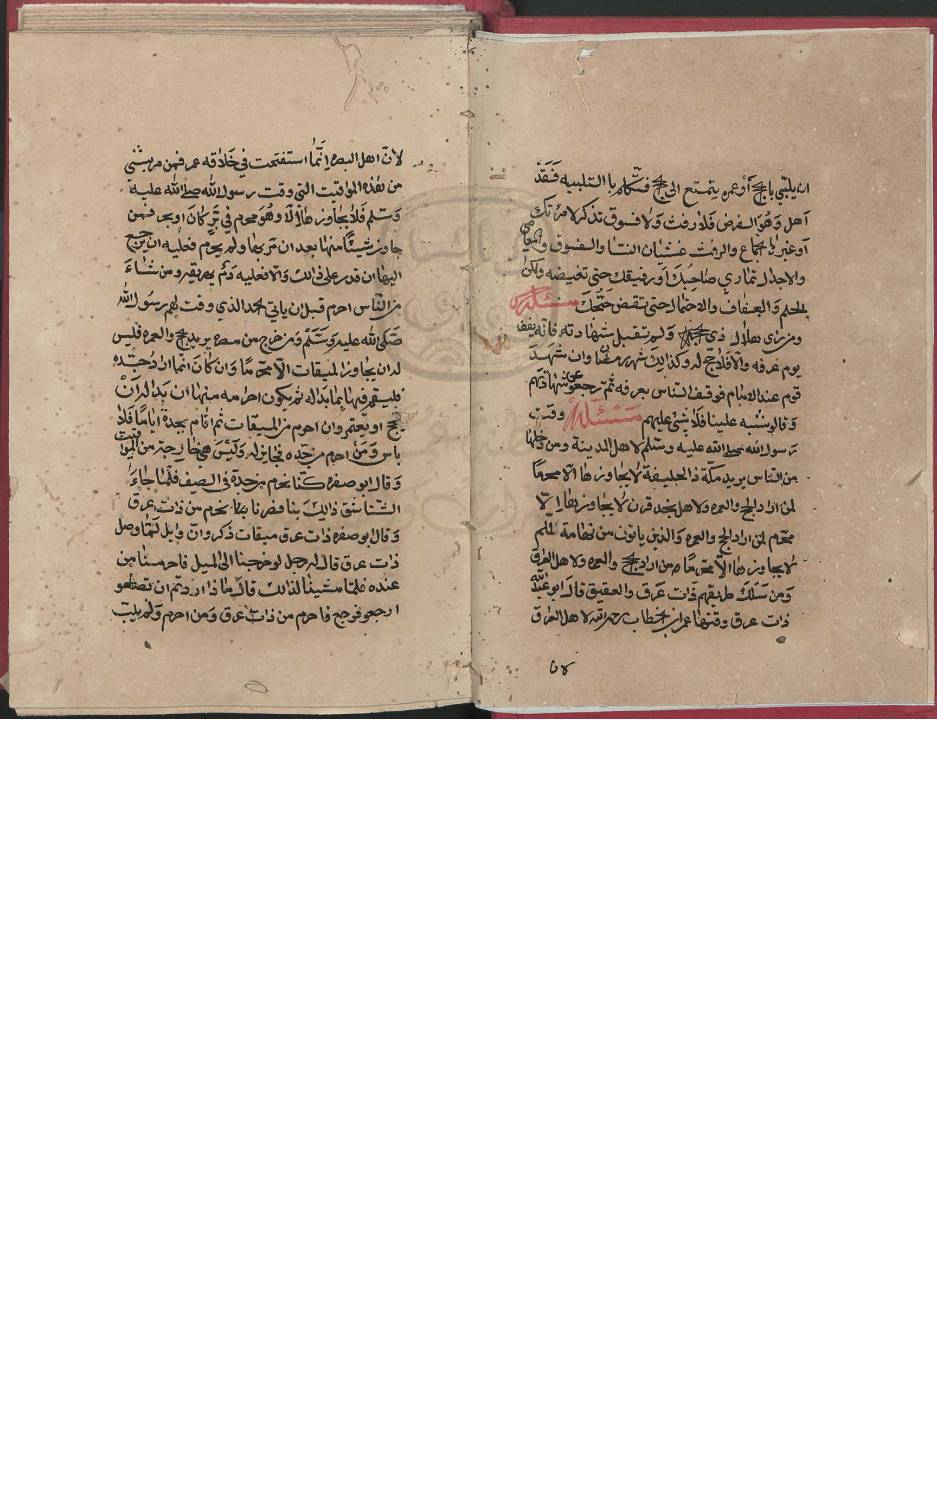 ان يلبّي بالحج أو عمره يتمتع الى الحج فتكلم با التلبيه فقد
آهل وَهُوَ الفرض فلا رفث وَلا فسوق تذكر لامرٔتك
أو غير ذا جماع والرفث غشيان النسا والفسوق والمعاصي
والاجدال تماري صاحبك أو رفيقك حتى تغيضه ولكن
الحلم وَالعفاف والاحتمال حتى تنقض حَجّك مسئله
ومن راى هلال ذي الحجه وَلم تقبل شهادته فانه يقف
يوم عرفه والّا فلا حجّ له وكذالك شهر رمضان وان شهد
قوم عند الامام فوقف الناس بعرفه ثم رجعو عن شهادتهم
وَقالو شبه علينا فلا شي عليهم مسئله وقت
رسول الله صلى الله عليه وسلم لاهل المدينة ومن دخلها
من الناس يريد مكّة ذا الحليفة لا يجاوزها الا محرمًا
لمن اراد الحج والعمره ولاهل نجد قرن لا يجاوزها الا
محرم لمن اراد الحج والعمره وَالذين يأتون من تهامة يلملم
لا يجاوزها الّا محرمًا من اراد الحج والعمره ولاهل العراق
وَمن سلك طريقهم ذات عرق والعقيق قال ابو عبد الله
ذات عرق وقتها عمر بن الخطاب رحمه الله لاهل العراق
لان
لانّ اهل البصره إنّما استفتحت في خلافه عمر فمن مر بشي
من هذه المواقيت التي وقت رسول الله صلى الله عليه
وَسلم فلا يجاوزها الا وهُوَ محرم في بَرّ كان او بحر فمن
جاوز شيئًا منها بعد ان مر بها ولم يحرم فعليه ان يرجع
اليها ان قدر على ذالك والا فعليه دَم يهريقه ومن شاءَ
من الناس احرم قبل ان ياتي الحد الذي وقت لهم رسُول الله
صَلى الله عليه وسَلّم وَمن خرج من مصره يريد الحج والعمره فليس
له ان يجاوز الميقات الّا محرمًا وَان كانَ انما اراد جدّه
فليقم فيها بما بدا له ثم يكون احرامه منها ان بدا له أنْ
يحج او يعتمر وان احرم من الميقات ثم اقام بجدة أياما فلا
باس وَمَن احرم من جدّه فجايز له وَليس هي خارجة من المواقيت
وَقال ابو صفره كنّا نحرم من جدة في الصيف فلما جاءَ
الشتا شق ذالك بنا فصرنا نحرم من ذات عرق
وَقال ابو صفره ذات عرق ميقات ذكر وانّ وايل لمّا وصل
ذات عرق قال له رجل لو خرجنا الى الميل فاحرمنا من
عنده فلمّا مشينا لذالك قال ماذا اردتم ان تصنعو
ارجعو فرجع فاحرم من ذات عرق وَمن احرم وَلم يلبّ